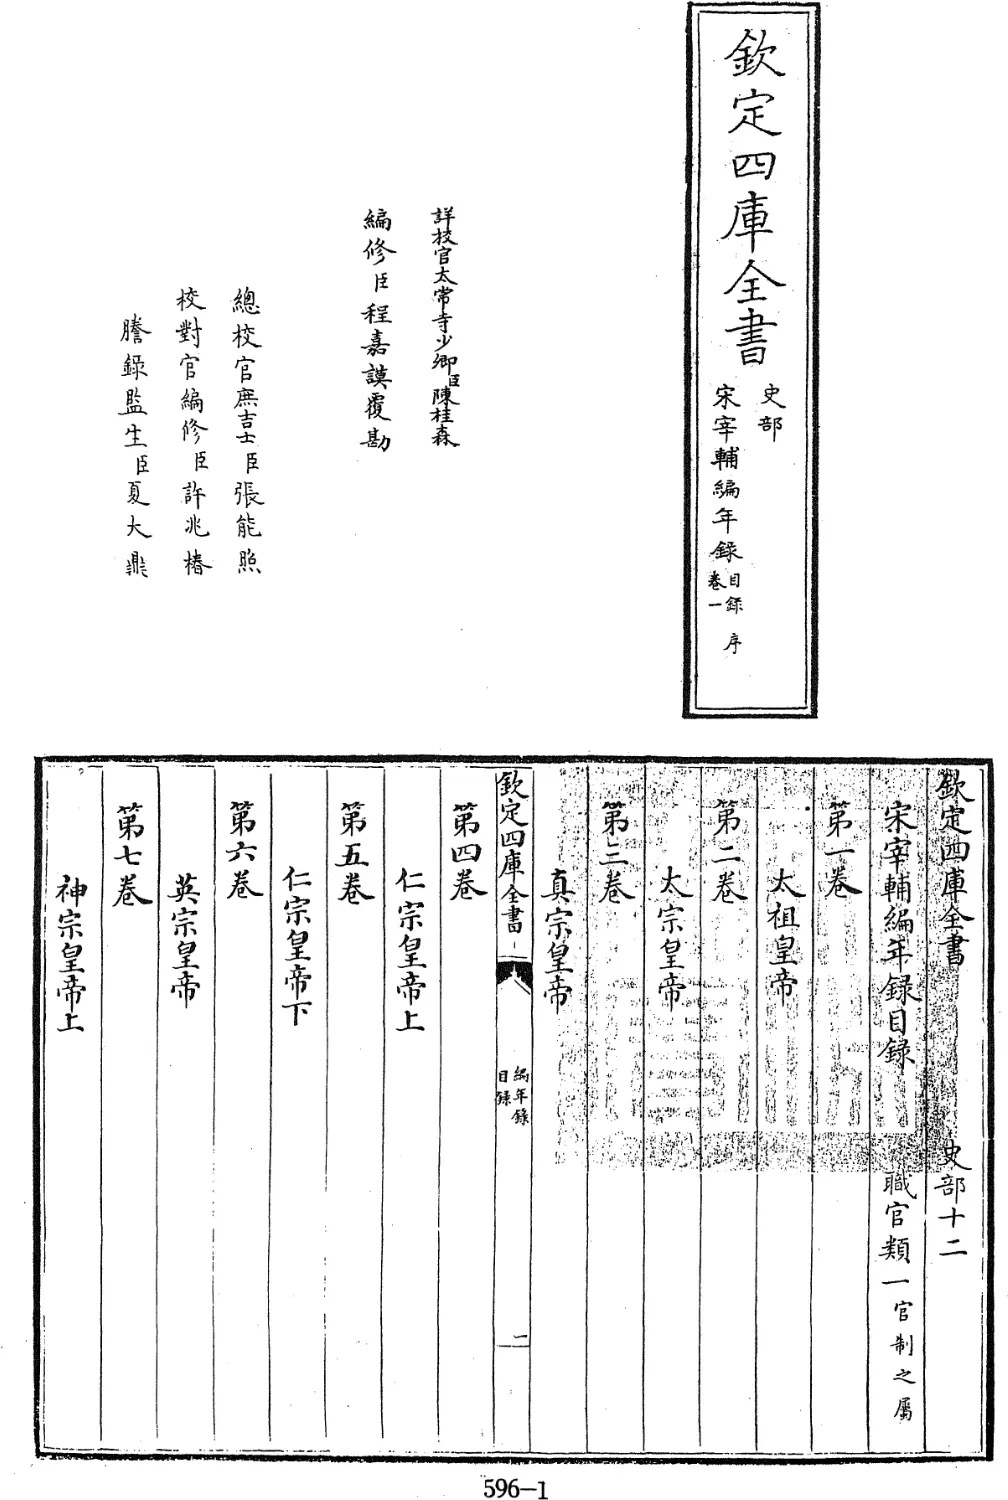 欽定四庫全書
史部
宋宰輔編年錄
目錄
卷一
序
詳校官太常寺少卿臣陳桂森
編修臣程嘉謨覆勘
總校官庶吉士臣張能照
校對官編修臣許兆椿
謄錄監生臣夏大鼎
欽定四庫全書 史部十二
宋宰輔編年錄目錄 職官類一官制之屬
第一卷
太祖皇帝
第二卷
太宗皇帝
第三卷
真宗皇帝
欽定四庫全書
編年錄
目錄
第四卷
仁宗皇帝上
第五卷
仁宗皇帝下
第六卷
英宗皇帝
第七卷
神宗皇帝上
596-1